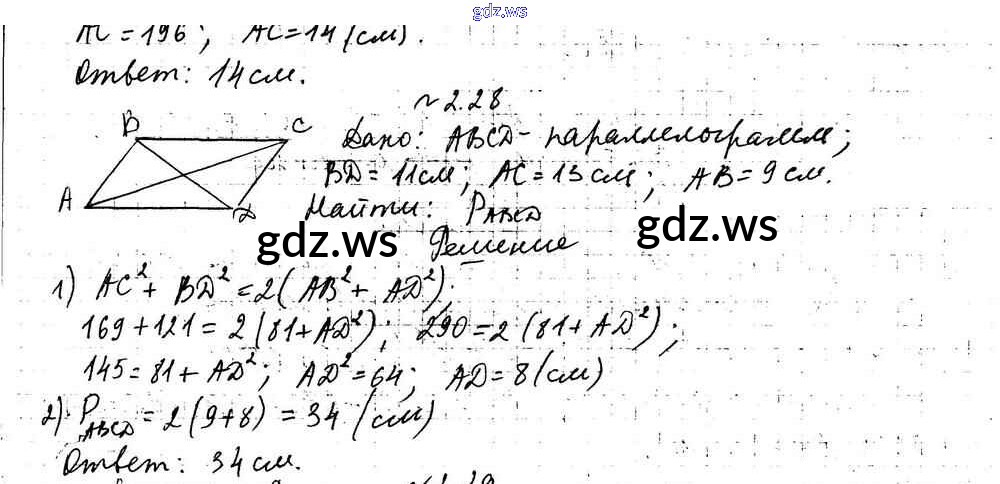 gdz.ws
AC = 196; AC = 14 (см).
Ответ: 14 см.
№ 2.28
B C
Дано: ABCD - параллелограмм;
BD = 11 см; AC = 13 см; AB = 9 см.
A D
Найти: P ABCD
gdz.ws
gdz.ws
Решение
1) AC² + BD² = 2(AB² + AD²);
169 + 121 = 2 (81 + AD²); 290 = 2 (81 + AD²);
145 = 81 + AD²; AD² = 64; AD = 8 (см)
2) P ABCD = 2 (9 + 8) = 34 (см)
Ответ: 34 см.